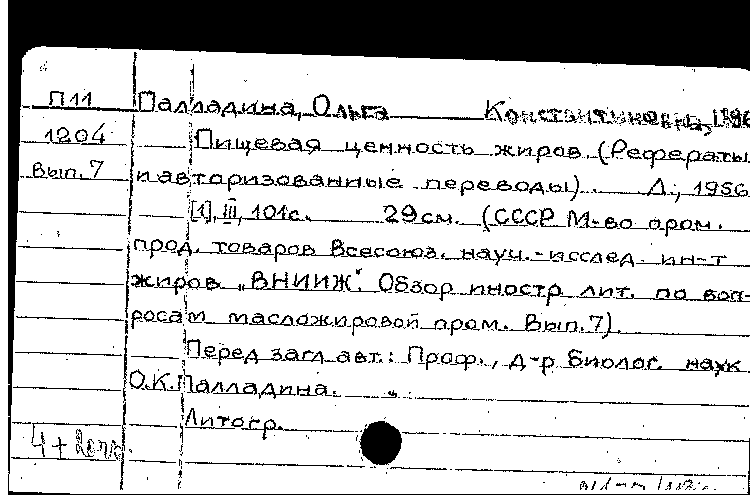 П11 Палладина, Ольга Константиновна,
1204 Пищевая ценность жиров. (Рефераты
Вып. 7 и авторизованные переводы). Л., 1956
[1], III, 101с. 29см. (СССР М-во пром.
прод. товаров Всесоюз. науч.-исслед. ин-т
жиров „ВНИИЖ". Обзор иностр. лит. по воп-
росам масложировой пром. Вып. 7).
Перед загл. авт.: Проф., д-р биолог. наук
О.К. Палладина.
Литогр.
4 +